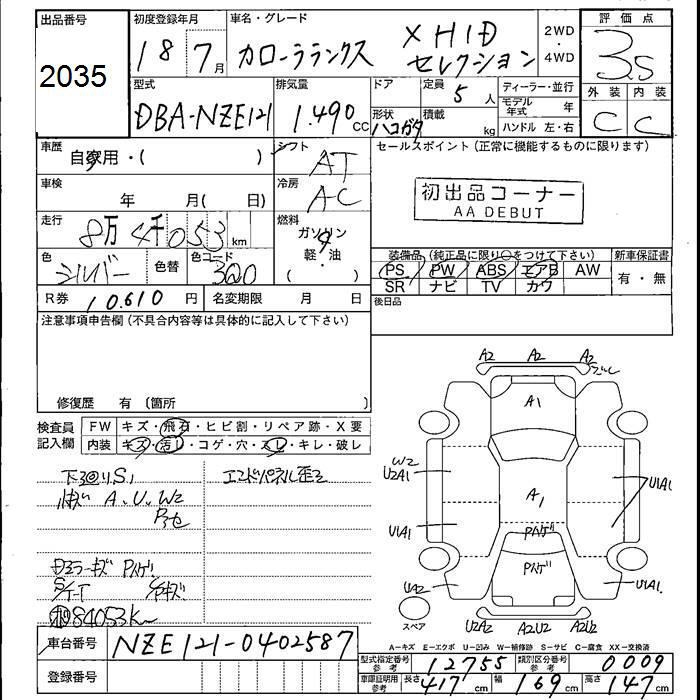 出品番号 初度登録年月 車名・グレード 2WD ・ 4WD 評価点
2035 18 7月 カローラランクス X HID セレクション 3.5
型式 排気量 ドア 定員 5人 ディーラー・並行 外装 内装
DBA-NZE121 1.490cc 形状 ハコガタ 積載 kg モデル年式 年 C C
ハンドル 左・右
車歴 自家用・( ) シフト AT セールスポイント(正常に機能するものに限ります)
車検 年 月( 日) 冷房 AC 初出品コーナー
AA DEBUT
走行 8万4千053km 燃料 ガソリン
軽・油
( )
色 シルバー 色替 色コード 装備品(純正品に限り○をつけて下さい) 新車保証書
PS PW ABS エアB AW 有・無
SR ナビ TV カワ
R券 10.610円 名変期限 月 日 後日品
注意事項申告欄(不具合内容等は具体的に記入して下さい)
修復歴 有〔箇所 〕
検査員記入欄 FW キズ・飛石・ヒビ割・リペア跡・X要
内装 キズ・汚レ・コゲ・穴・スレ・キレ・破レ
A2 A2 A2
A1
W2
U2A1
A1
U1A1
U1A1
U1A1
U2A2 A2U2 A2U2
A.U.W2
エンドパネル歪ミ
84053km
スペア
A-キズ E-エクボ U-凹み W-補修跡 S-サビ C-腐食 XX-交換済
車台番号 NZE121-0402587
登録番号
型式指定番号 参考 12755 類別区分番号 参考 0009
車庫証明用 参考 長さ 417cm 幅 169cm 高さ 147cm